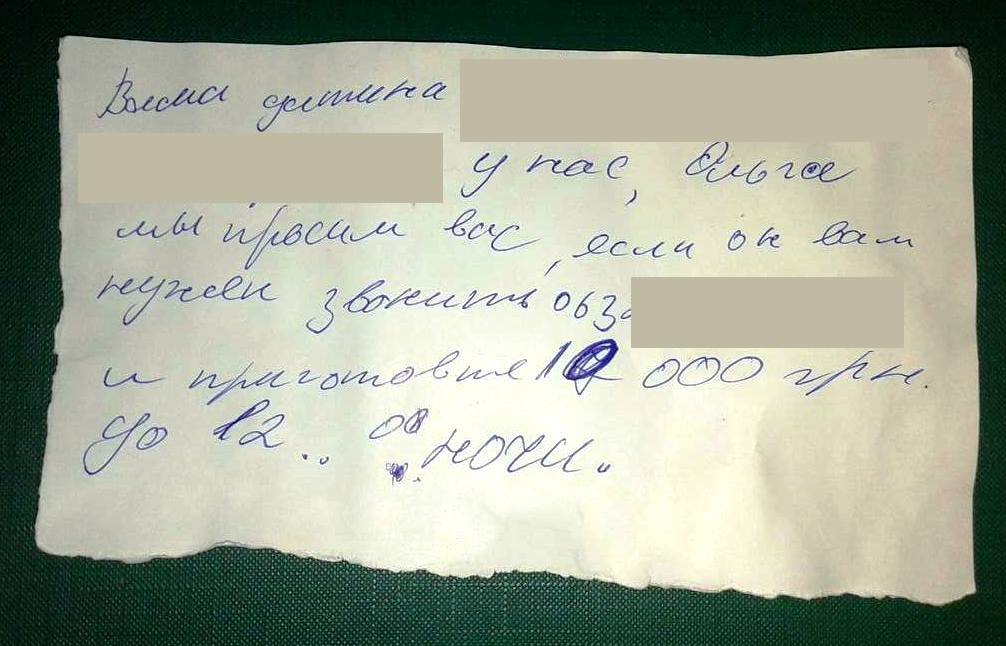 Ваша дитина
у нас, Ольга
мы просим вас, если он вам
нужен звонить 063
и приготовте 10 000 грн.
до 12.. 00 ночи.